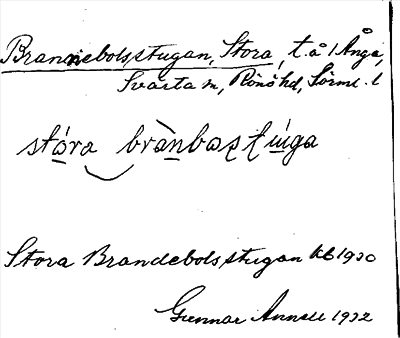 Brannebolsstugan, Stora, t. å 1 Ånga,
Svärta sn, Rönö hd, Sörml. l
stóra brànbosstúga
Stora Brandebolsstugan kb 1930
Gunnar Annell 1932